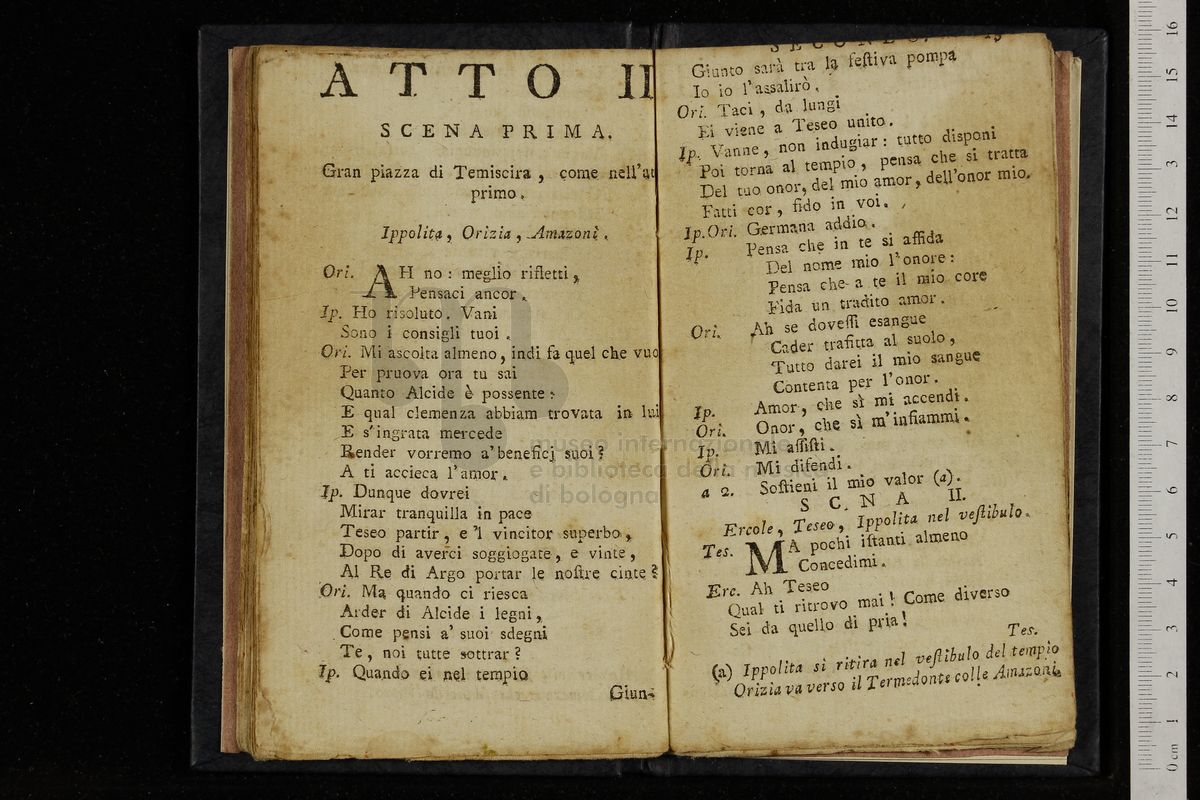 ATTO II
SCENA PRIMA.
Gran piazza di Temiscira, come nell'at
primo.
Ippolita, Orizia, Amazoni.
Ori. AH no: meglio rifletti,
Pensaci ancor.
Ip. Ho risoluto. Vani
Sono i consigli tuoi.
Ori. Mi ascolta almeno, indi fa quel che vuo
Per pruova ora tu sai
Quanto Alcide è possente:
E qual clemenza abbiam trovata in lui
E s'ingrata mercede
Render vorremo a' beneficj suoi?
A ti accieca l'amor.
Ip. Dunque dovrei
Mirar tranquilla in pace
Teseo partir, e 'l vincitor superbo,
Dopo di averci soggiogate, e vinte,
Al Re di Argo portar le noſtre cinte?
Ori. Ma quando ci riesca
Arder di Alcide i legni,
Come pensi a' suoi sdegni
Te, noi tutte sottrar?
Ip. Quando ei nel tempio
Giun-
SECONDO. 15
Giunto sarà tra la feſtiva pompa
Io io l'assalirò.
Ori. Taci, da lungi
Ei viene a Teseo unito.
Ip. Vanne, non indugiar: tutto disponi
Poi torna al tempio, pensa che si tratta
Del tuo onor, del mio amor, dell'onor mio.
Fatti cor, fido in voi.
Ip.Ori. Germana addio.
Ip. Pensa che in te si affida
Del nome mio l'onore:
Pensa che a te il mio core
Fida un tradito amor.
Ori. Ah se doveſſi esangue
Cader trafitta al suolo,
Tutto darei il mio sangue
Contenta per l'onor.
Ip. Amor, che sì mi accendi.
Ori. Onor, che sì m'infiammi.
Ip. Mi aſſiſti.
Ori. Mi difendi.
a 2. Soſtieni il mio valor (a).
SCNA II.
Ercole, Teseo, Ippolita nel veſtibulo.
Tes. MA pochi iſtanti almeno
Concedimi.
Erc. Ah Teseo
Qual ti ritrovo mai! Come diverso
Sei da quello di pria!
Tes.
(a) Ippolita si ritira nel veſtibulo del tempio
Orizia va verso il Termedonte colle Amazoni.
museo internazionale
e biblioteca della musica
di bologna
0 cm 1 2 3 4 5 6 7 8 9 10 11 12 13 14 15 16